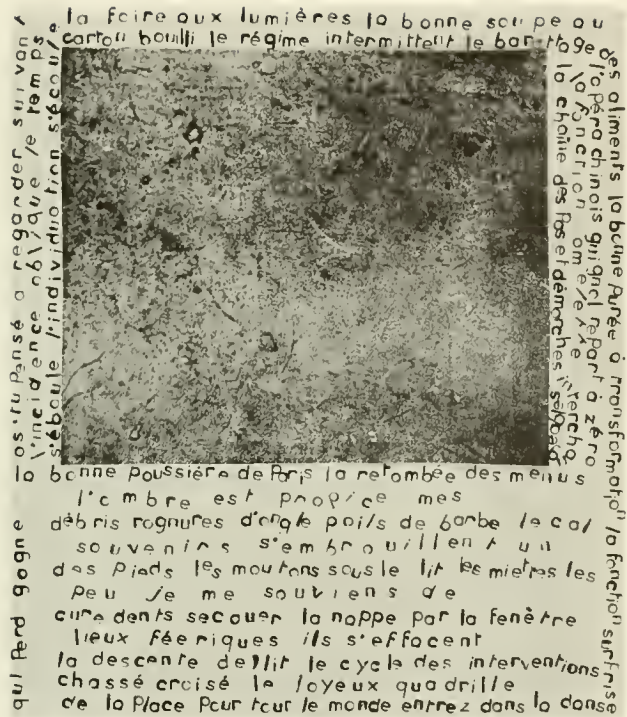 la foire aux lumières la bonne soupe au
carton bouilli le régime intermittent le barattage
des aliments la bonne purée à transformation la fonction surfrise
l'opéra chinois guignol repart à zéro
la fonction
la chaîne des pas et démarches
as-tu pensé a regarder suivant
l'incidence oblique le temps
s'éboule l'individuation s'écoule
qui perd gagne
la bonne poussière de Paris la retombée des menus
l'ombre est propice mes
débris rognures d'ongle poils de barbe le cal
souvenirs s'embrouillent un
des pieds les moutons sous le lit les miettes les
peu je me souviens de
cure dents secouer la nappe par la fenêtre
lieux féeriques ils s'effacent
la descente de lit le cycle des interventions
chassé croisé le joyeux quadrille
de la place pour tout le monde entrez dans la danse